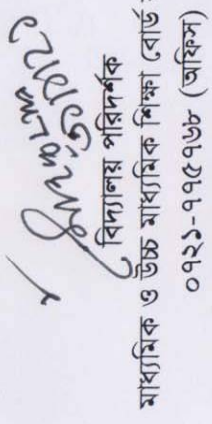 বিদ্যালয় পরিদর্শক
মাধ্যমিক ও উচ্চ মাধ্যমিক শিক্ষা বোর্ড
০৭২১-৭৭৫৭৬৮ (অফিস)